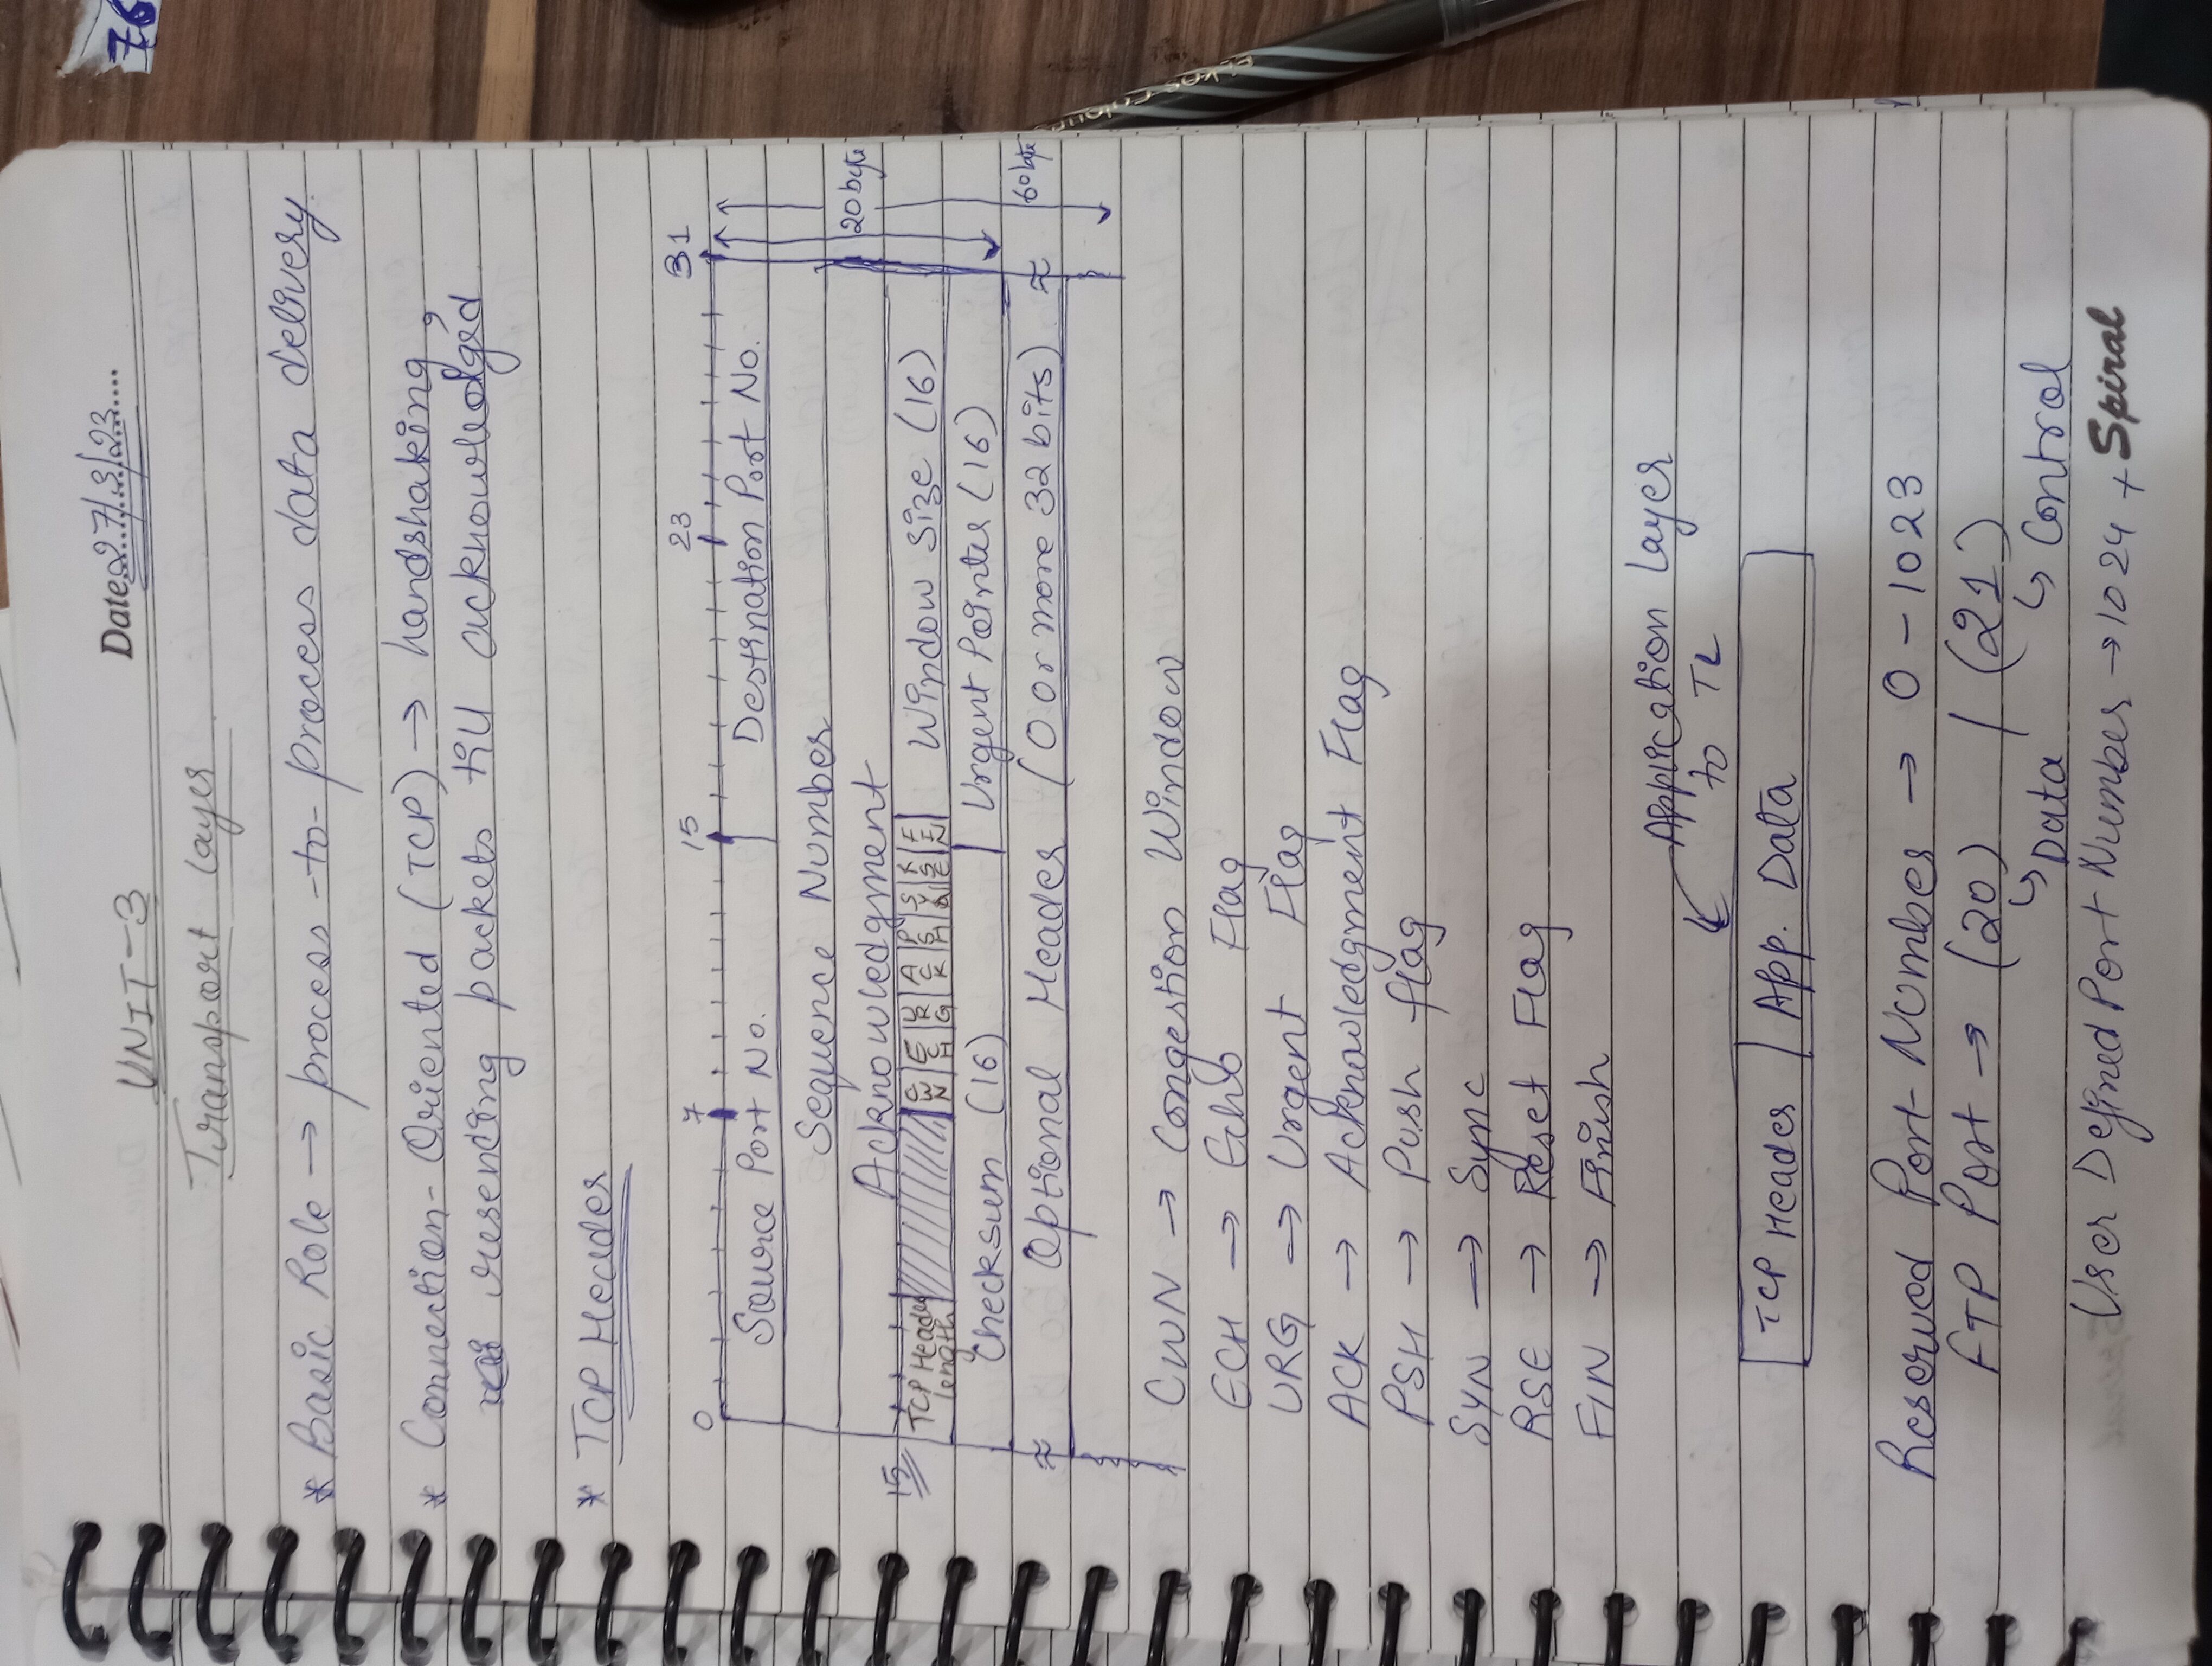 Date 27/3/23
UNIT-3
Transport Layer
* Basic Role → process-to-process data delivery.
* Connection-Oriented (TCP) → handshaking,
resending packets till acknowledged.
* TCP Header
0 7 15 23 31
Source Port No. Destination Port No.
Sequence Number
Acknowledgment
20 byte
15 TCP Header length CWN ECH URG ACK PSH SYN RSE FIN Window Size (16)
Checksum (16) Urgent Pointer (16)
≈ Optional Header (0 or more 32 bits) ≈ 60 byte
CWN → Congestion Window
ECH → Echo Flag
URG → Urgent Flag
ACK → Acknowledgment Flag
PSH → Push flag
SYN → Sync
RSE → Reset Flag
FIN → Finish
Application Layer
to TL
TCP Header App. Data
Reserved Port Number → 0-1023
FTP Port → (20) / (21)
↳ Data ↳ Control
User Defined Port Number → 1024 +
Spiral
76